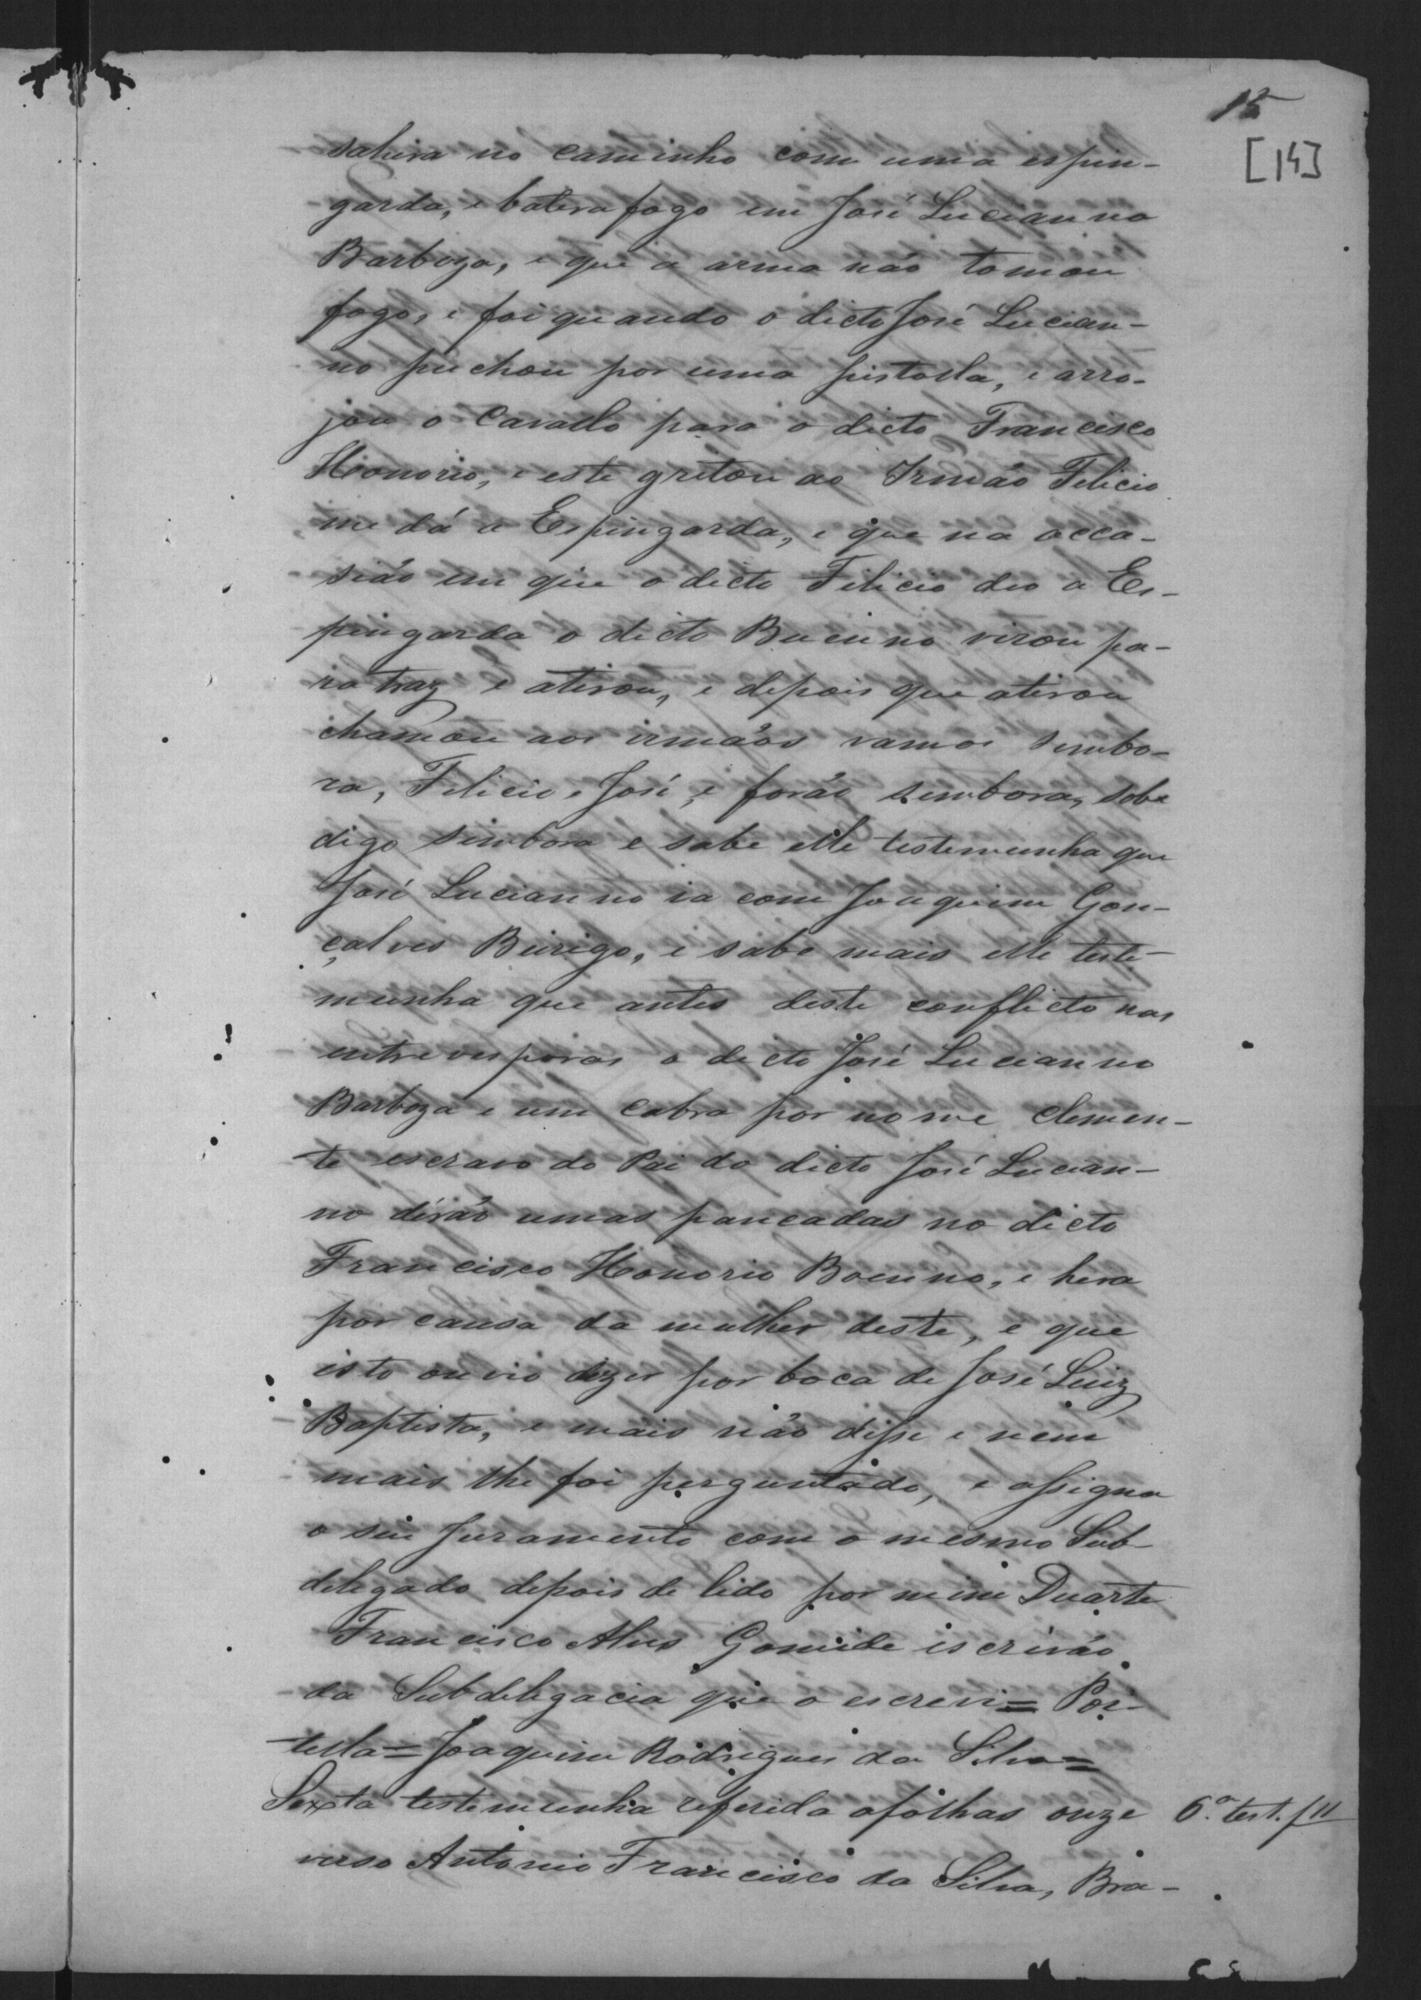 15
[14]
sahira no caminho com uma espin-
garda, e batera fogo em José Lucianno
Barboza, e que a arma não tomou
fogo, e foi quando o dicto José Lucian-
no puchou por uma pistolla, e arro-
jou o Cavallo para o dicto Francisco
Honorio, e este gritou ao Irmão Felicio
me dá a Espingarda, e que na occa-
sião em que o dicto Felicio deo a Es-
pingarda o dicto Bueuno virou pa-
ra traz e atirou, e depois que atirou
chamou aos irmãos vamos simbo-
ra, Felicio e José, e forão simbora, sabe
digo simbora e sabe elle testemunha que
José Lucianno ia com Joaquim Gon-
çalves Burigo, e sabe mais elle teste-
munha que antes deste conflicto nas
entrevesporas o dicto José Lucianno
Barboza e um cabra por nome Clemen-
te escravo do Pai do dicto José Lucian-
no dérão umas pancadas no dicto
Francisco Honorio Boenno, e hera
por causa da mulher deste, e que
isto ouvio dizer por boca de José Luiz
Baptista, e mais não disse e nem
mais lhe foi perguntado, e assigna
o seu juramento com o mesmo Sub-
delegado depois de lido por mim Duarte
Francisco Alves Gomide iscrivão
da Subdelegacia que o escrevi = Por-
tella = Joaquim Rodrigues da Silva =
Sexta testemunha referida a folhas onze
6.ª test. f 11
verso Antonio Francisco da Silva, Bra-